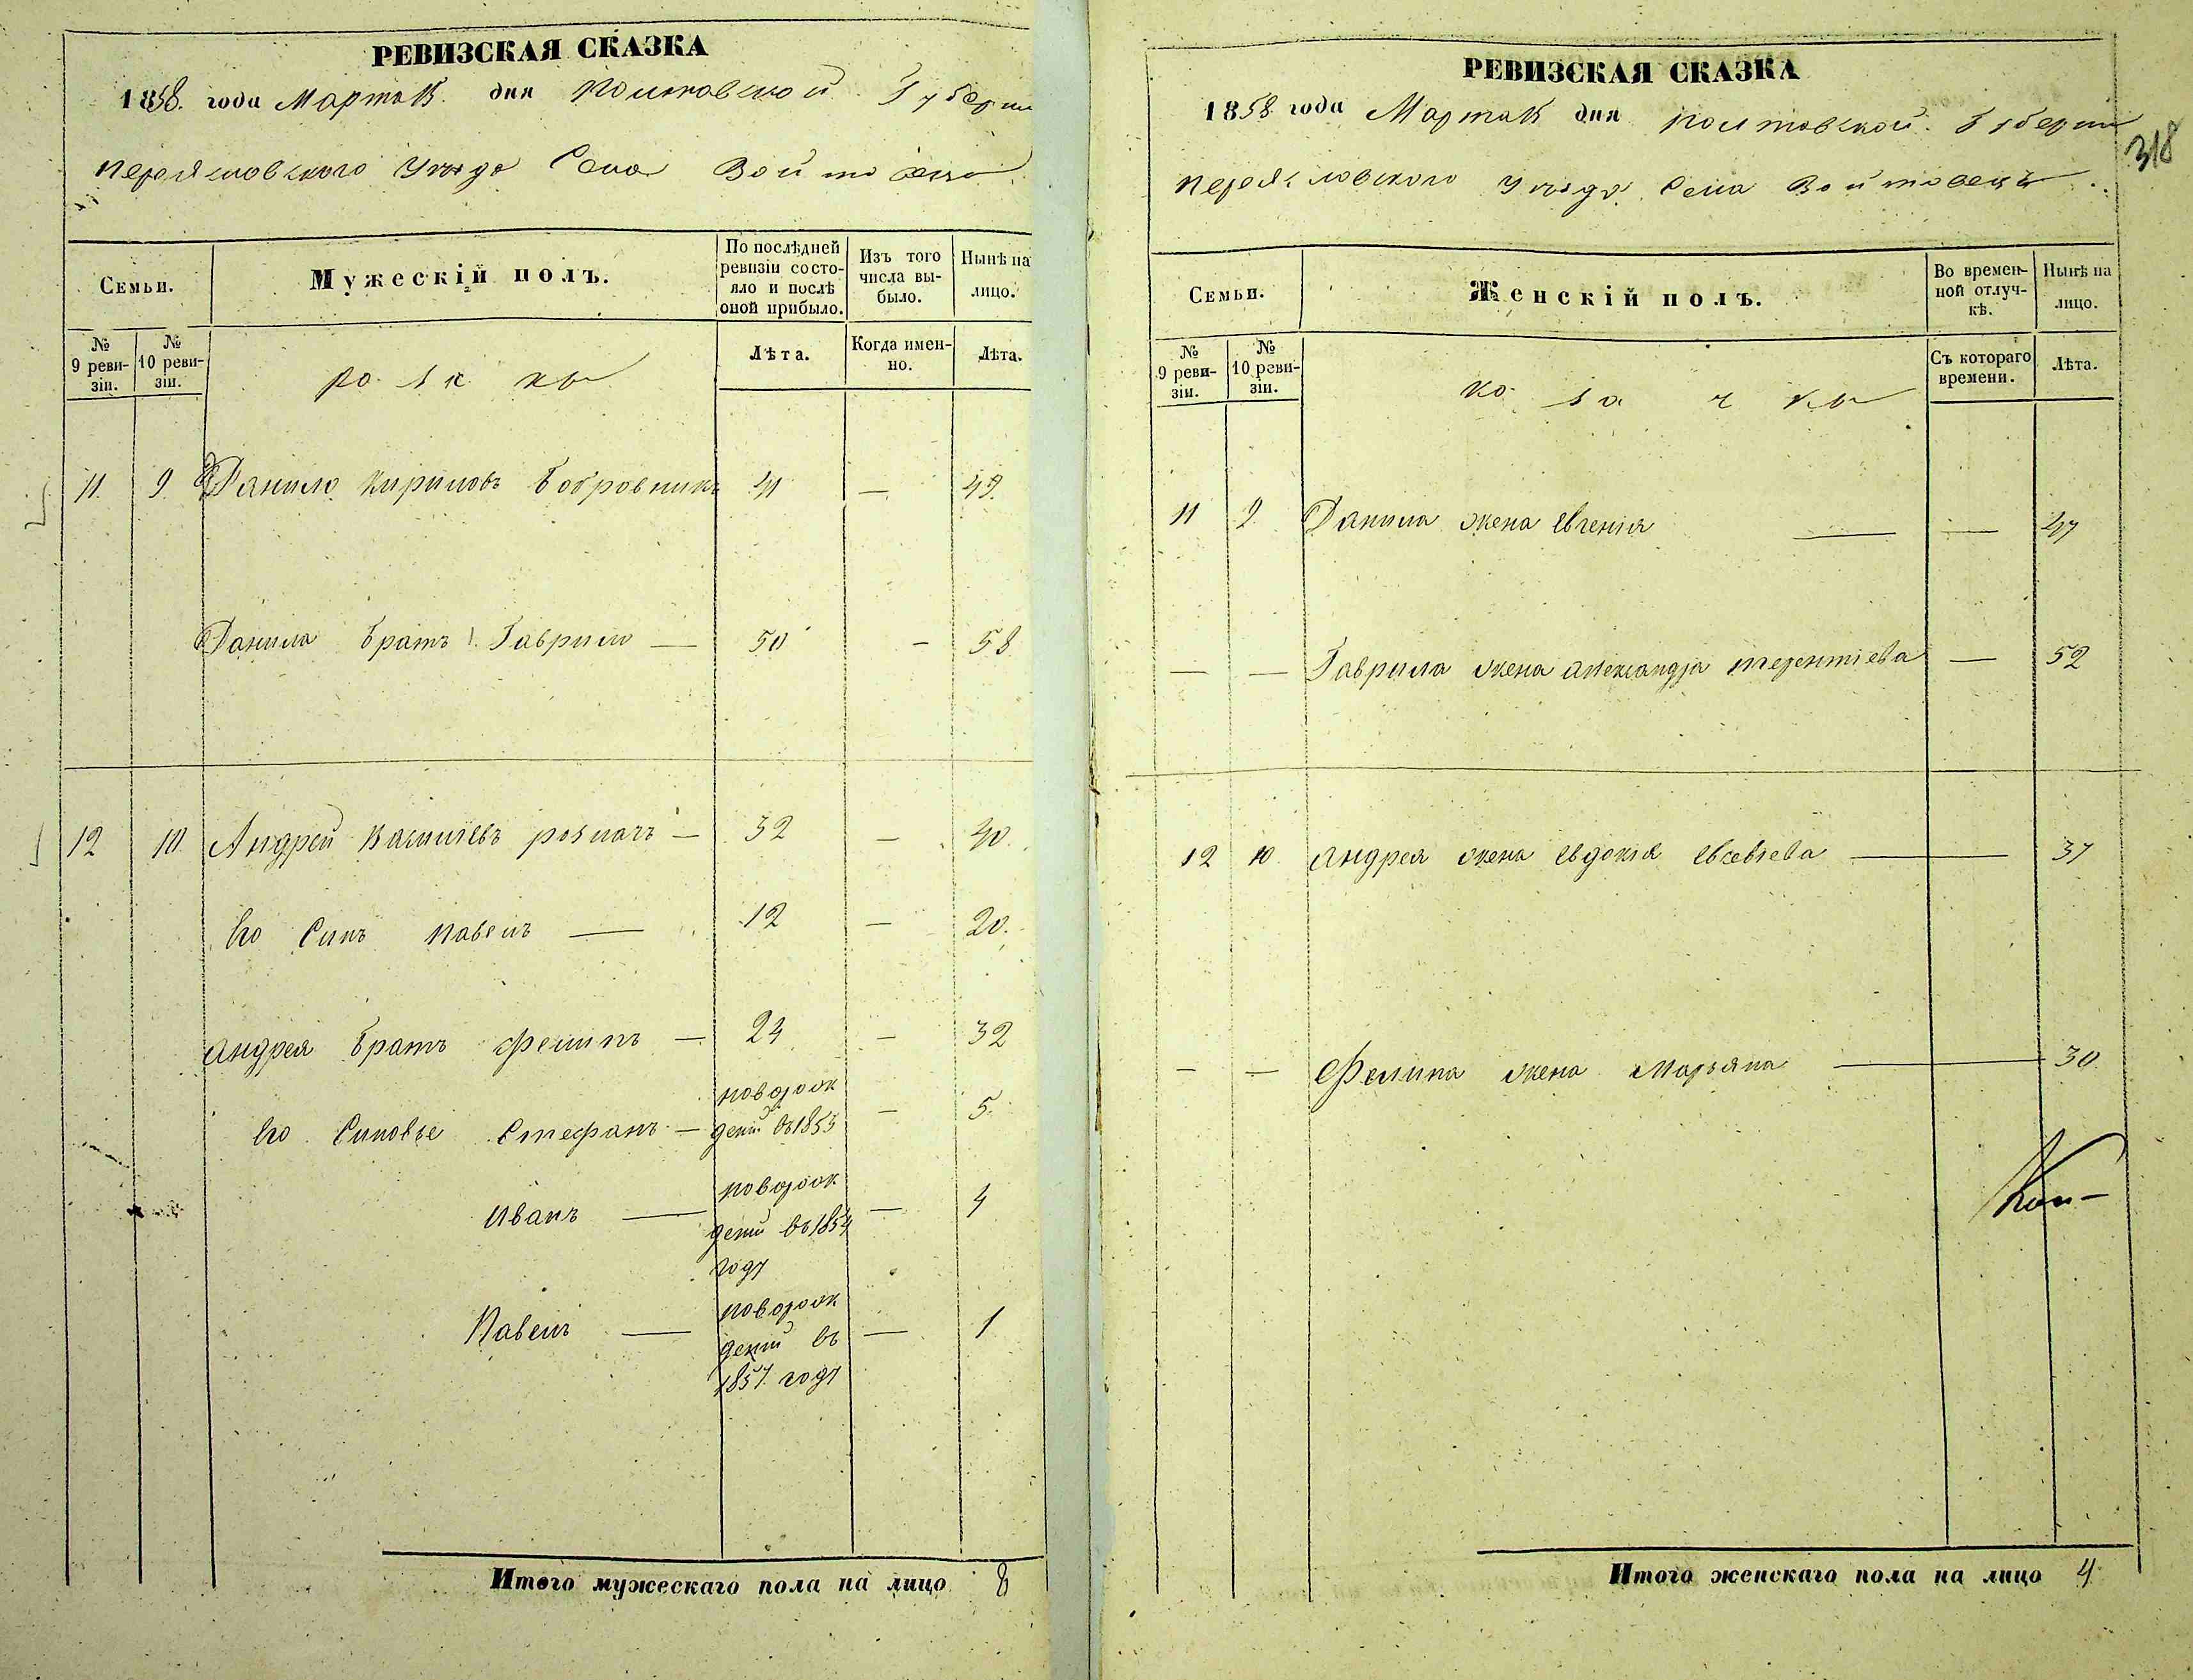 РЕВИЗСКАЯ СКАЗКА
1858. года Марта 15. дня Полтавской Губерни
Переясловского Уезда Села Войтовец
Семьи.
Мужескій полъ.
По послѣдней ревизіи состо-
яло и послѣ
оной прибыло.
Изъ того
числа вы-
было.
Нынѣ на
лицо.
№
9 реви-
зіи.
№
10 реви-
зіи.
Лѣта.
Когда имен-
но.
Лѣта.
11. 9. Данило Кириловъ Бобровникъ 41 — 49.
Данила братъ Гаврило — 50 — 58
12 10 Андрей Василіевъ — 32 — 40.
Его Синъ Павелъ — 12 — 20.
Андрея братъ Филипъ — 24 — 32
Его Синовье Стефанъ — новорож
деный въ 1853 — 5.
Иванъ — новорож
деный въ 1854 — 4
году
Павелъ — новорож
деный въ — 1
1857 году
Итого мужескаго пола на лицо 8
РЕВИЗСКАЯ СКАЗКА
1858 года Марта 15 дня Полтавской Губерни
318
Переясловского Уезда Села Войтовецъ
Семьи.
Женскій полъ.
Во времен-
ной отлуч-
кѣ.
Нынѣ на
лицо.
№
9 реви-
зіи.
№
10 реви-
зіи.
Съ котораго
времени.
Лѣта.
козачки
11 9. Данила жена Евгенія — — 47
— — Гаврила жена Александра Терентіева — 52
12 10. Андрея жена Евдокія Евсевіева — 37
— — Филипа жена Марьяна — 30
Итого женскаго пола на лицо 4